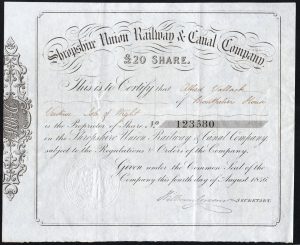 Shropshire Union Railway & Canal Company
£20 SHARE.
This is to Certify that Alfred
of House
Isle of Wight
is the Proprietor of Share No 123580
in the Shropshire Union Railway & Canal Company,
subject to the Regulations & Orders of the Company.
Given under the Common Seal of the
Company this fourth day of August 1846
SECRETARY.